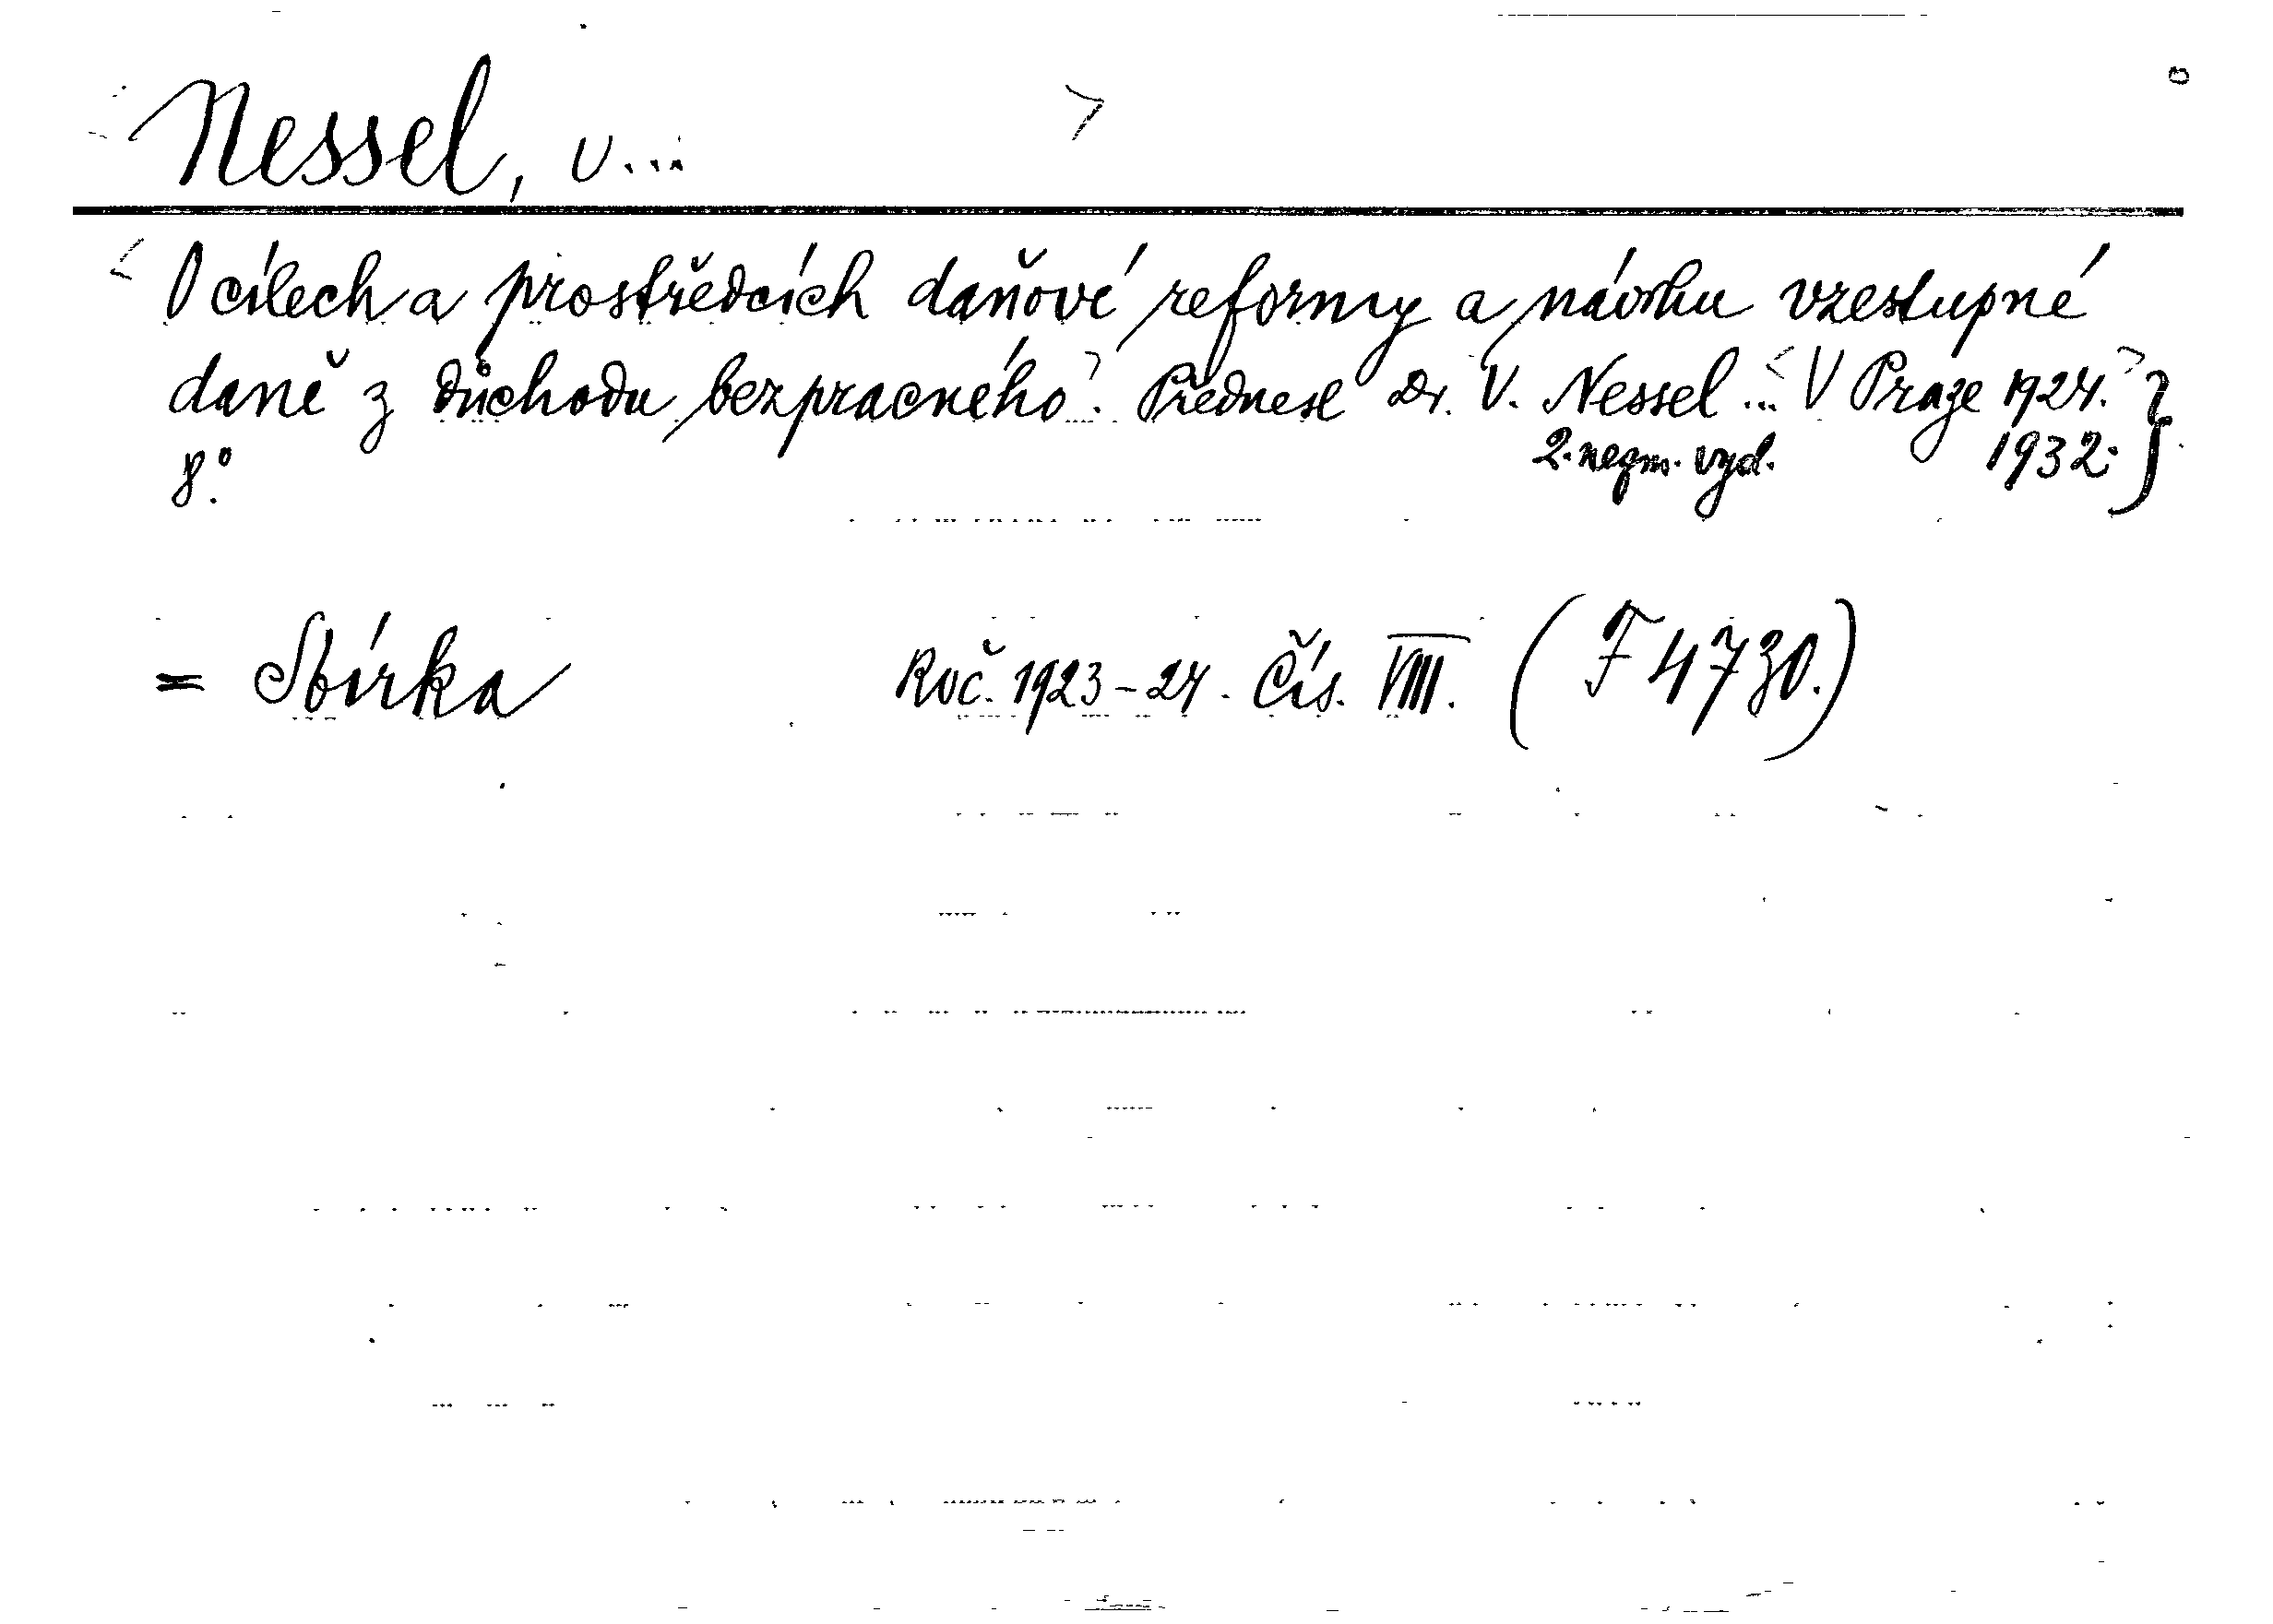 Nessel, V...
O cílech a prostředcích daňové reformy a návrhu vzestupné
daně z důchodu bezpracného. Přednesl Dr. V. Nessel ... V Praze 1924. }
8°. 2. nezm. vyd. 1932.
= Sbírka Roč. 1923-24. Čís. VIII. (F 4730.)